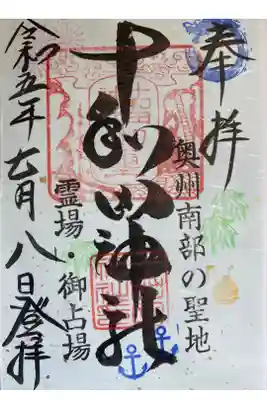 奉拝
奥州南部の聖地
十和田神社
霊場・御占場
令和五年七月八日登拝